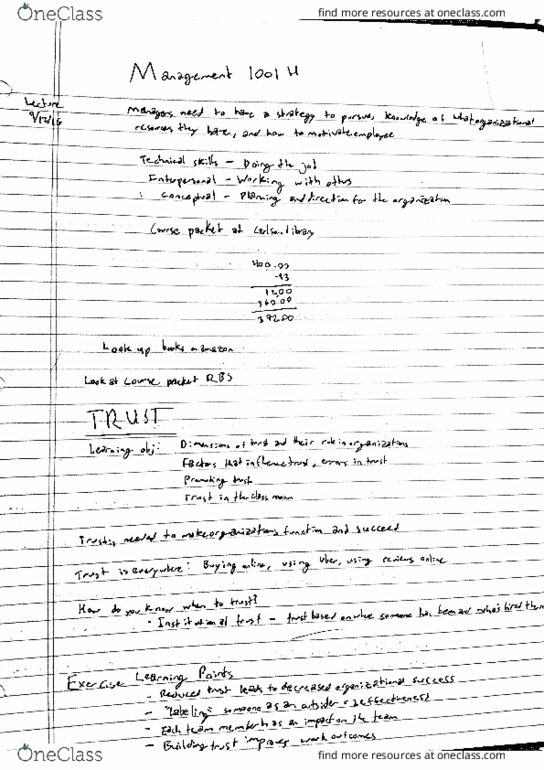 OneClass
find more resources at oneclass.com
Management 1001 H
Lecture
9/12/16
Managers need to have a strategy to pursue, knowledge of what organizational
resources they have, and how to motivate employee
Technical skills - Doing the job
Interpersonal - Working with others
Conceptual - Planning and direction for the organization
Course packet at Carlson library
400.00
.93
12.00
360.00
372.00
Look up books on amazon
Look at course packet RBS
TRUST
Learning obj: Dimensions of trust and their role in organizations
Factors that influence trust, errors in trust
Promoting trust
Trust in the class room
Trust is needed to make organizations function and succeed
Trust is everywhere: Buying online, using Uber, using reviews online
How do you know when to trust?
· Institutional trust - trust based on where someone has been and who's hired them
Exercise Learning Points
- Reduced trust leads to decreased organizational success
- "Labeling" someone as an outsider = ineffectiveness
- Each team member has an impact on the team
- Building trust improves work outcomes
OneClass
find more resources at oneclass.com